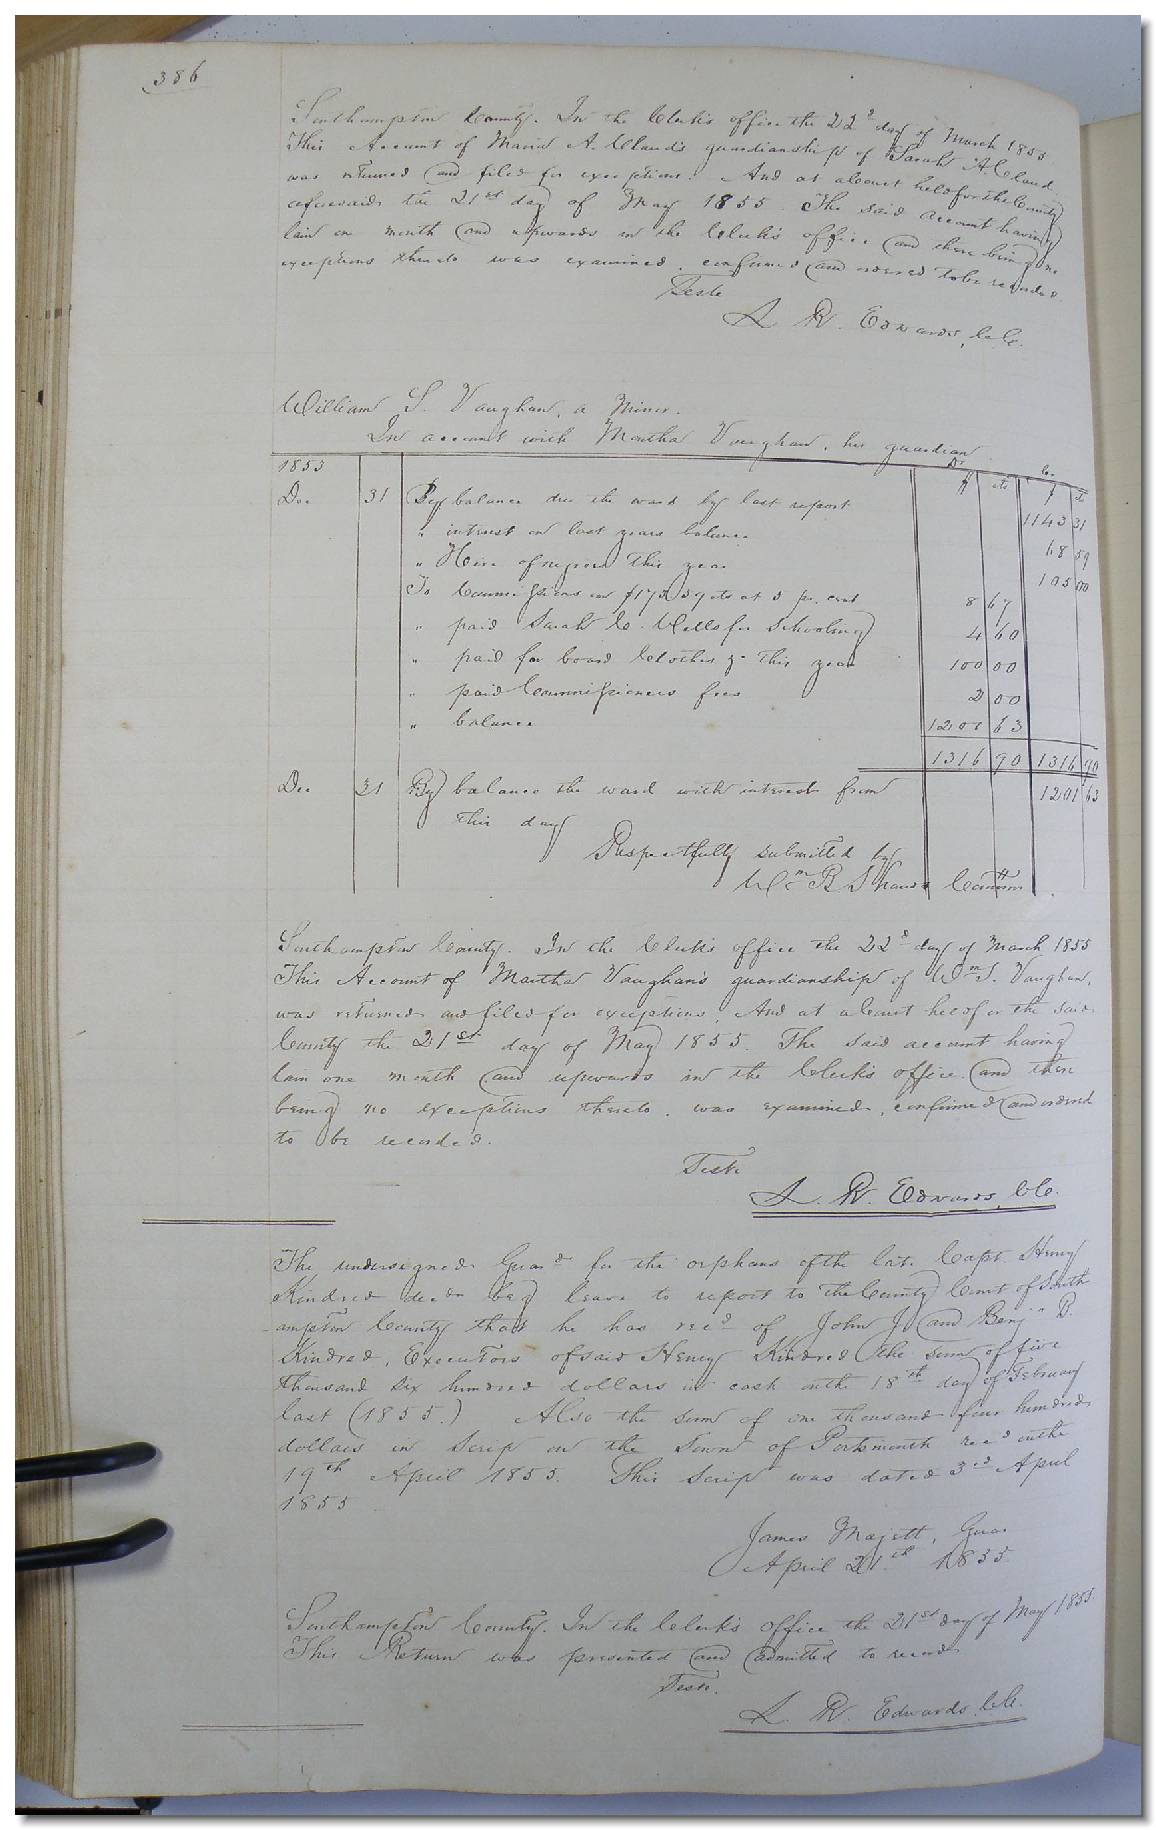 386
Southampton County. In the Clerk's office the 22d day of March 1855
This Account of Maria A. Claud's guardianship of Sarah A. Claud
was returned and filed for exceptions. And at a Court held for the County
aforesaid the 21st day of May 1855 The said account having
lain on month and upwards in the Clerk's office and there being no
exceptions thereto was examined, confirmed and ordered to be recorded
Teste
L. R. Edwards, C.C.
William S. Vaughan, a Minor.
In account with Martha Vaughan, her guardian.
1853 Dr Cr
Dec 31 By balance due the ward by last report $ cts $ cts
1143 31
" interest on last years balance 68 59
" Hire of negroes this year 105 00
To Commissions on $173.59 cts at 5 pr. cent 8 67
" paid Sarah C. Wells for Schooling 4 60
" paid for board Clothes &c this year 100 00
" paid Commissioners fees 2 00
" balance 1201 63
1316 90 1316 90
Dec 31 By balance the ward with interest from 1201 63
this day
Respectfully submitted by
Wm B Shands Comm
Southampton County. In the Clerk's office the 22d day of March 1855
This Account of Martha Vaughan's guardianship of Wm S. Vaughan,
was returned and filed for exceptions, And at a Court held for the said
County the 21st day of May 1855. The said account having
lain one month and upwards in the Clerk's office and there
being no exceptions thereto, was examined, confirmed and ordered
to be recorded.
Teste
L. R. Edwards, C.C.
The undersigned Guard for the orphans of the late Capt. Henry
Kindred decdn beg leave to report to the County Court of South
ampton County that he has recd of John J. and Benjn B.
Kindred, Executors of said Henry Kindred the sum of five
thousand six hundred dollars in cash on the 18th day of February
last (1855.) Also the sum of one thousand four hundred
dollars in Scrip on the Town of Portsmouth recd on the
19th April 1855. This Scrip was dated 3rd April
1855
James Majett, Guar
April 21th 1855
Southampton County. In the Clerk's office the 21st day of May 1855.
This Return was presented and admitted to record
Teste.
L. R. Edwards, C.C.